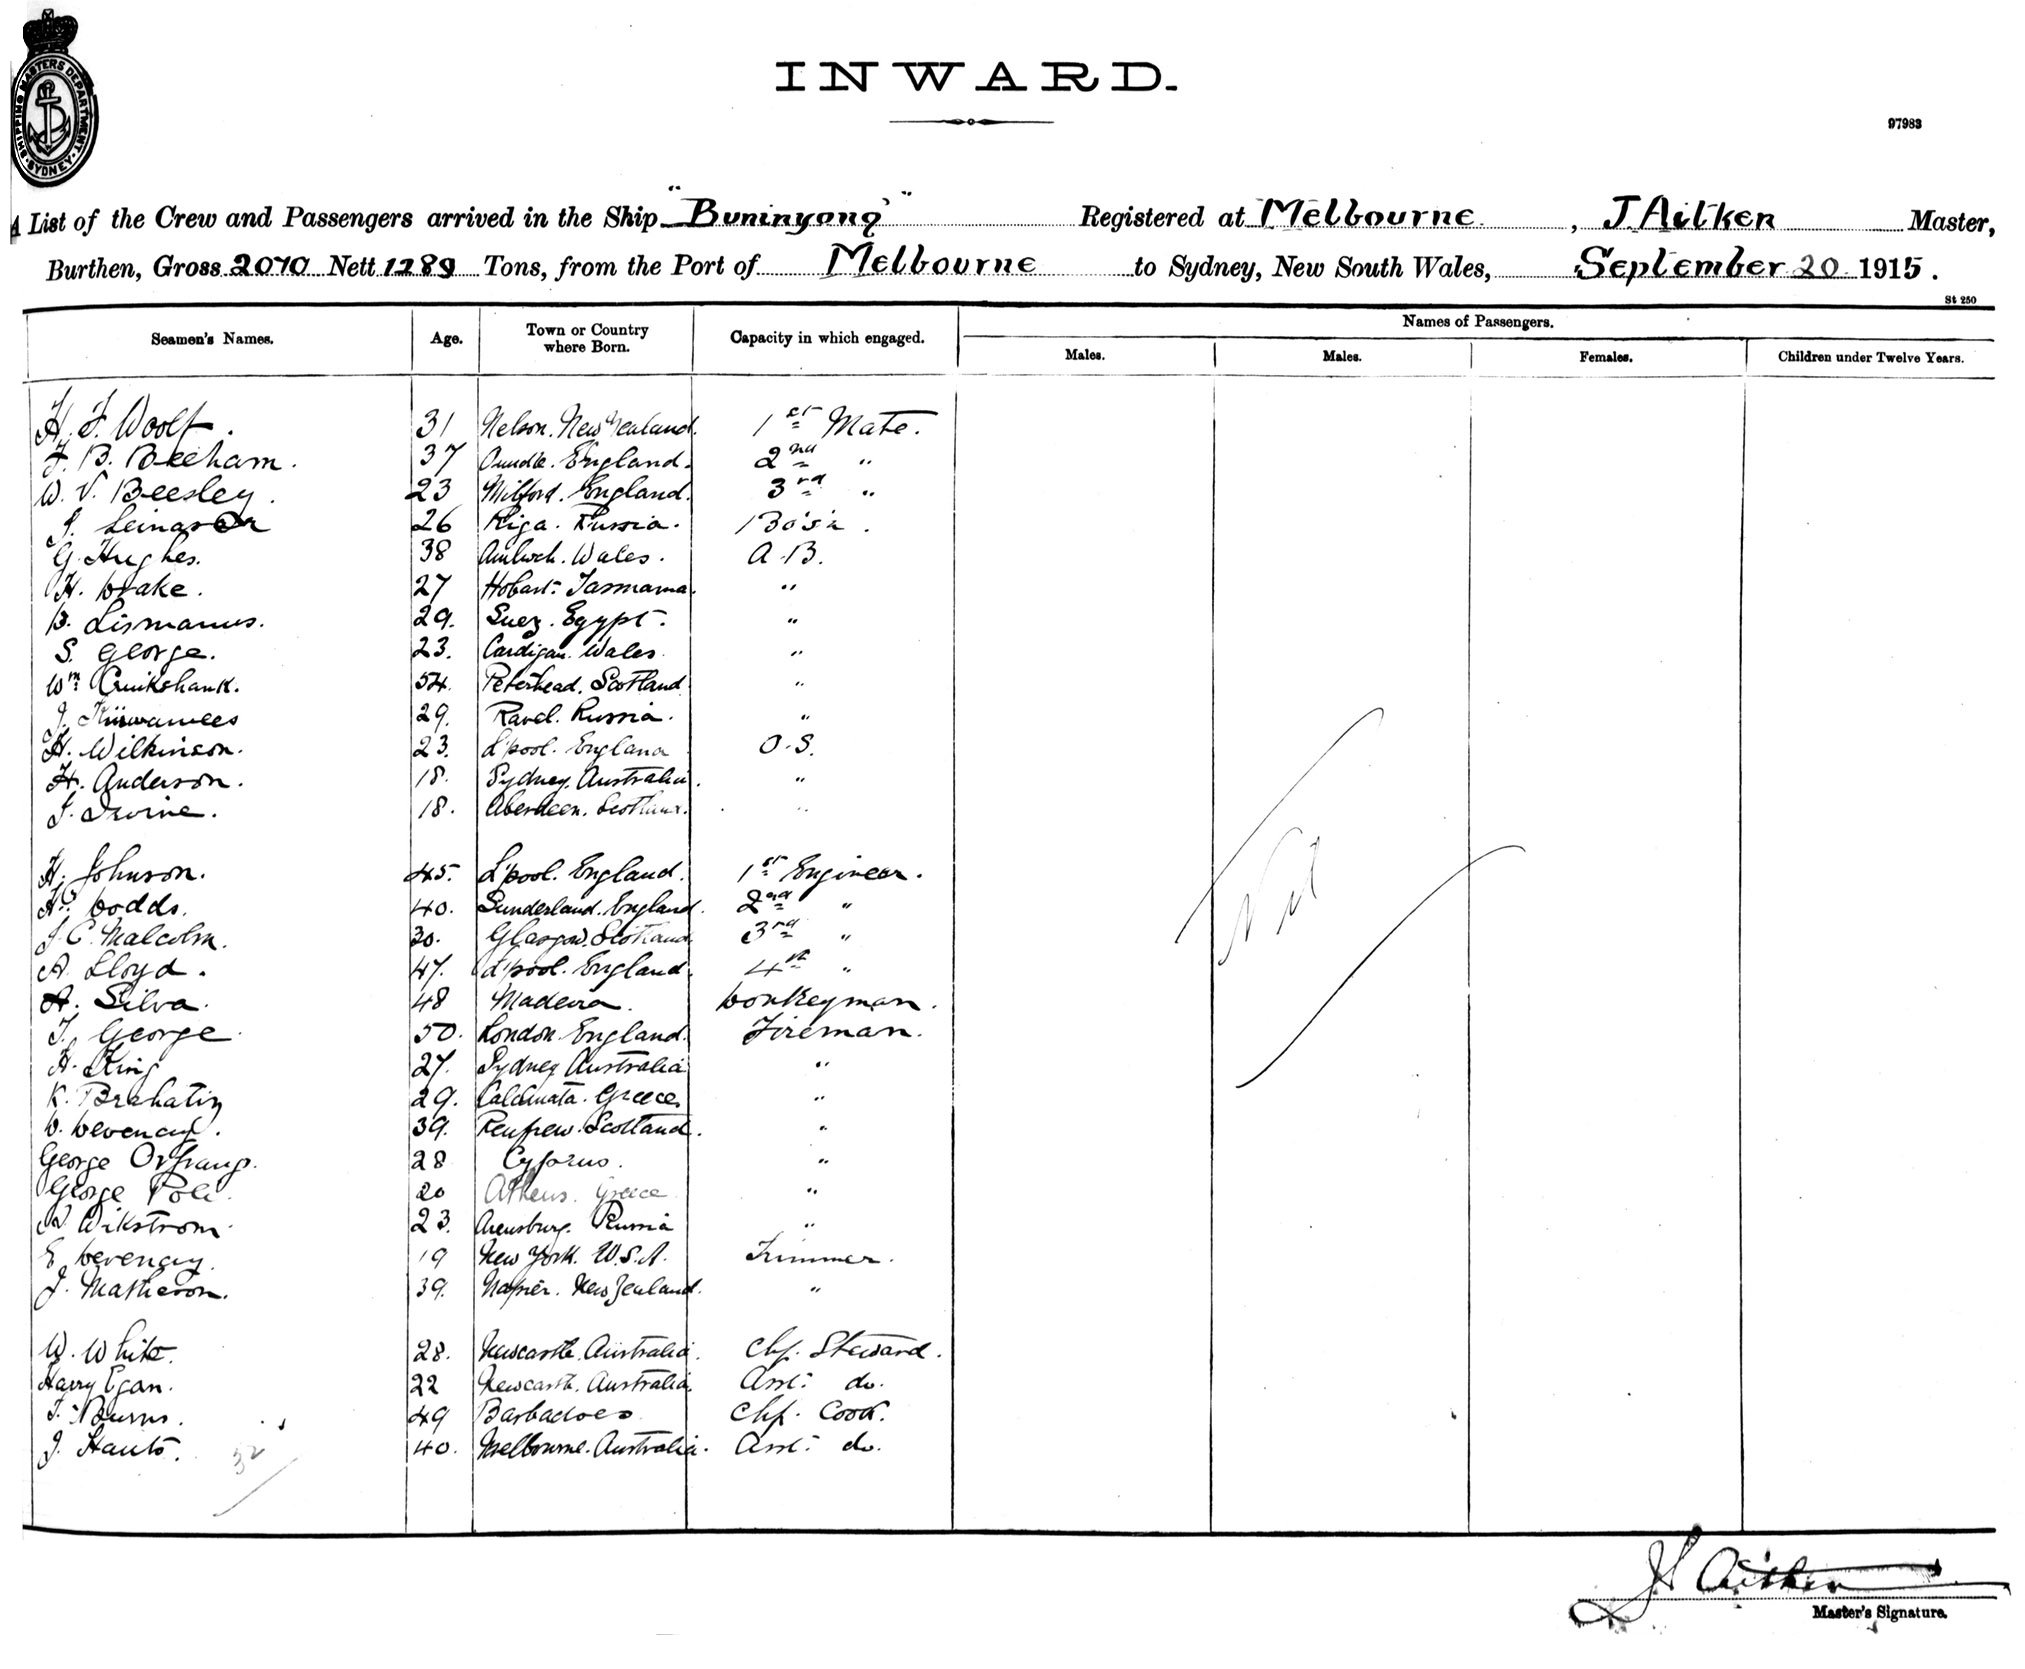 SHIPPING MASTERS DEPARTMENT. SYDNEY
INWARD.
97983
A List of the Crew and Passengers arrived in the Ship "Buninyong" Registered at Melbourne, J. Aitken Master,
Burthen, Gross 2070 Nett 1289 Tons, from the Port of Melbourne to Sydney, New South Wales, September 20 1915.
St 250
Seamen's Names. Age. Town or Country where Born. Capacity in which engaged. Names of Passengers.
Males. Males. Females. Children under Twelve Years.
H. F. Woolf. 31 Nelson. New Zealand. 1st Mate.
F. B. Beeham. 37 Oundle. England. 2nd "
W. V. Beesley. 23 Milford. England. 3rd "
26 Riga. Russia. Bo's'n.
G. Hughes. 38 Amlwch. Wales. A.B.
H. Drake. 27 Hobart. Tasmania. "
B. Lismanus. 29. Suez. Egypt. "
S. George. 23. Cardigan. Wales. "
Wm Cruikshank. 54. Peterhead. Scotland "
29. Ravel. Russia. "
H. Wilkinson. 23. L'pool. England O.S.
H. Anderson. 18. Sydney. Australia. "
J. Irvine. 18. Aberdeen. Scotland. "
H. Johnson. 45. L'pool. England. 1st Engineer.
Dodds. 40. Sunderland. England. 2nd "
J. C. Malcolm. 30. Glasgow. Scotland 3rd "
A. Lloyd. 47. L'pool. England. 4th "
A. Silva. 48 Madeira. Donkeyman.
T. George. 50. London. England. Fireman.
H. King 27. Sydney Australia "
K. Brahatiz 29. Calamata. Greece. "
D. Devenay. 39. Renfrew. Scotland. "
George 28 Cyprus. "
George Pole. 20 Athens. Greece "
Wikstrom. 23. Arensburg. Russia "
E. Devenay. 19 New York. U.S.A. Trimmer.
J. Matheson. 39. Napier. New Zealand. "
Nil
W. White. 28. Newcastle. Australia. Chf. Steward.
Harry Egan. 22 Newcastle. Australia. Asst. do.
T. Burns. 49 Barbadoes Chf. Cook.
J. 40. Melbourne. Australia. Asst. do.
32
J Aitken
Master's Signature.